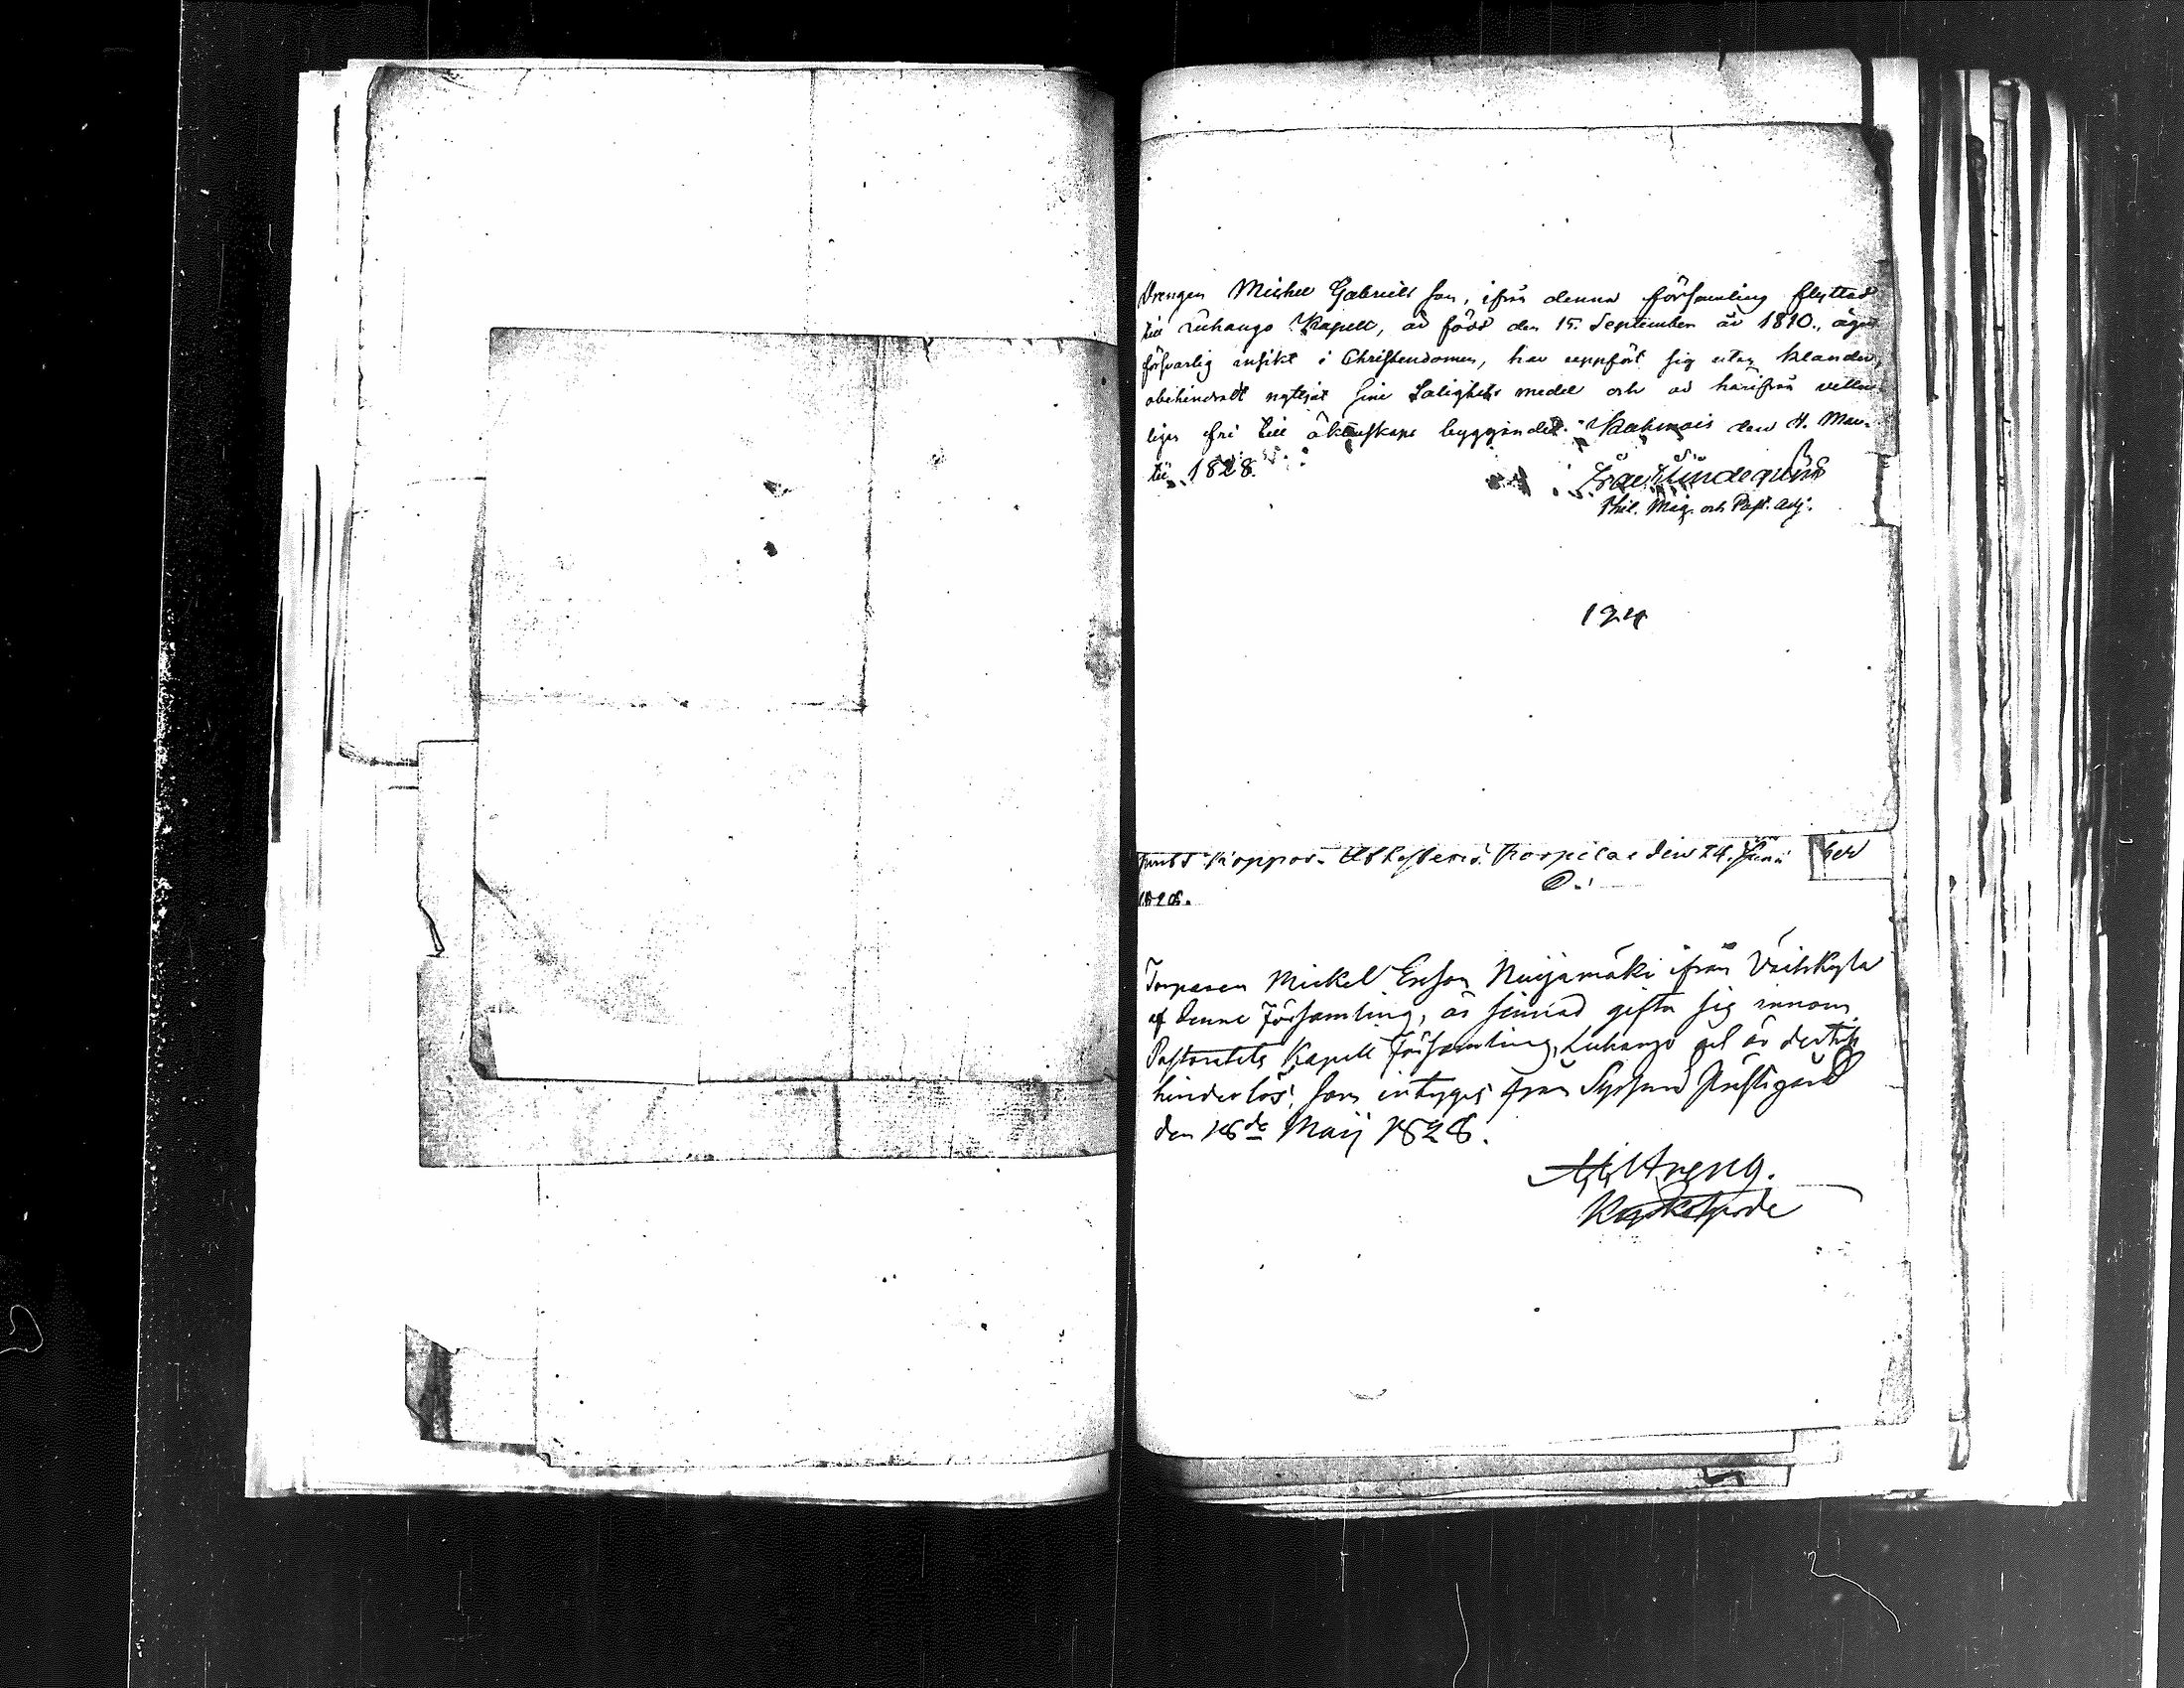 Drengen Michel Gabriels son, ifrån denna församling flyttad
till Luhango Kapell, är född den 15. September år 1810., äger
försvarlig insikt i Christendomen, har uppfört sig utan klander,
obehindradt nyttjat sine Salighets medel och är härifrån vetter-
ligen fri till äktenskaps byggande. Kuhmois den 4. Mar-
tii 1828.
Lindequist
Phil. Mag. och Past. Adj.
124
samt Koppor. Attesteras. Korpilax den 24. Junii
1828.
Torparen Mickel Ersson Nuijamäki ifrån Väihkylä
af denne Församling, är sinnad gifta sig innom
Pastoratets Kapell Församling, Luhango och är dertill
hinderlös; som intygas från Sysmä Prästgård
den 18de Maij 1828.